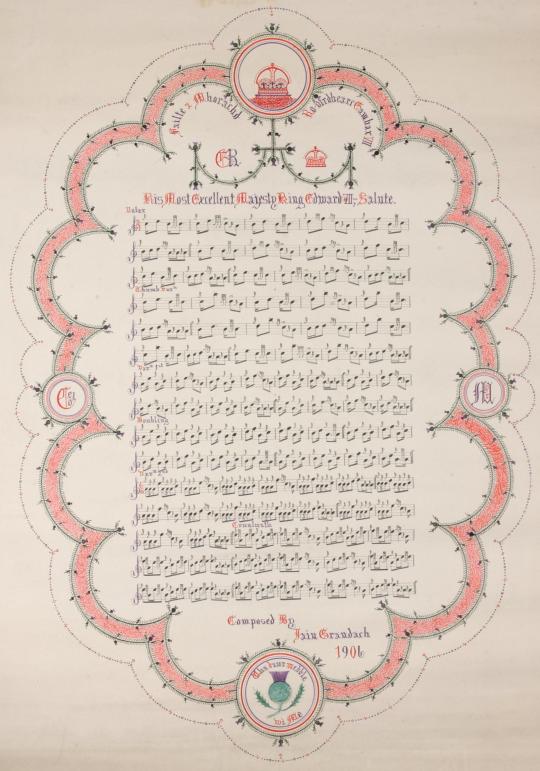 Failte a Mhorachd
E.R.
His Most Excellent Majesty King Edward VII— Salute.
Urlar
Thumb Varn
Varn 1st
Doubling
Composed By
Iain Grandach
1906
Wha daur meddle
wi Me